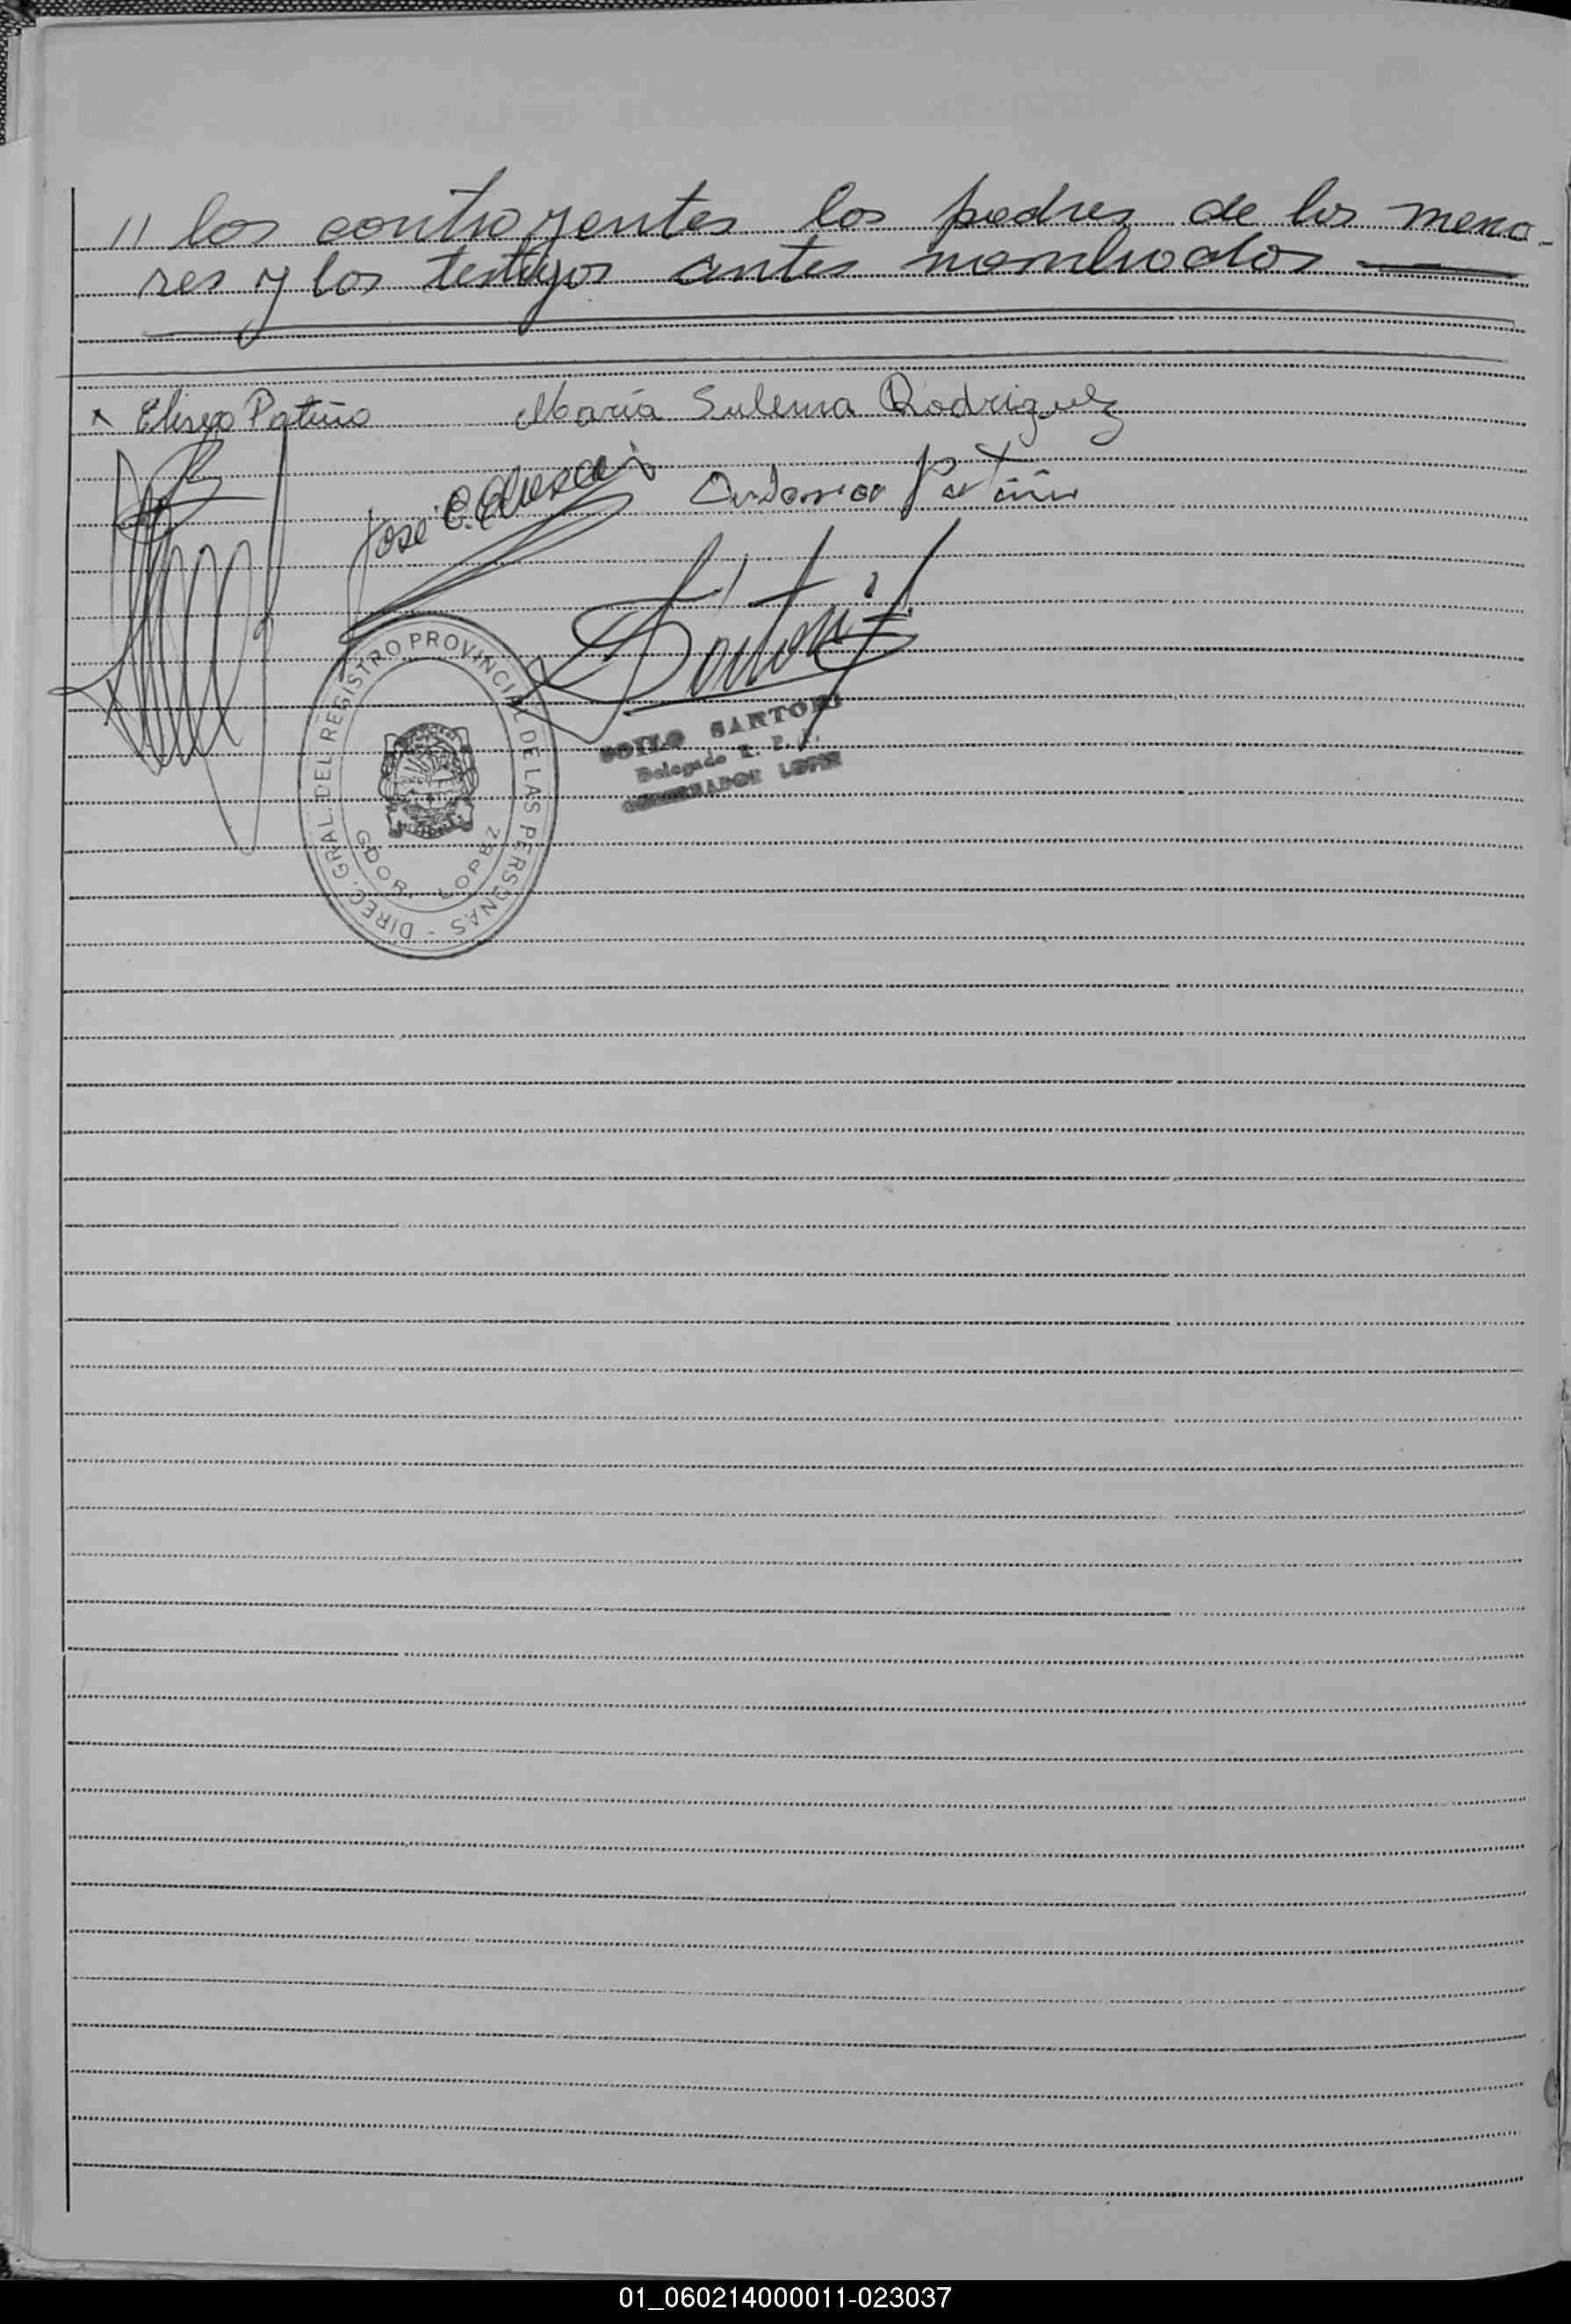 // los contrayentes los padres de los meno-
res y los testigos antes nombrados
x Eliseo Patiño María Sulema Rodriguez
José C.
Antonia Patiño
Sartori
DIREC. GRAL. DEL REGISTRO PROVINCIAL DE LAS PERSONAS -
GDOR. LOPEZ
SARTORI
Delegado R. P. P.
GOBERNADOR LOPEZ
01_060214000011-023037